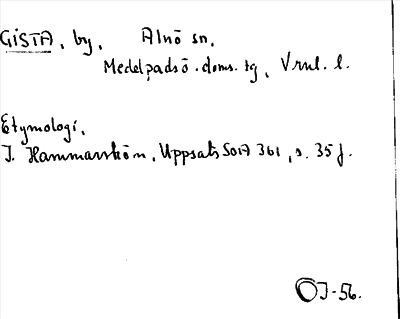 GISTA, by, Alnö sn,
Medelpads ö. doms. tg, Vrnl. l.
Etymologi,
I. Hammarström, Uppsats SOA 361, s. 35 f.
OJ-56.